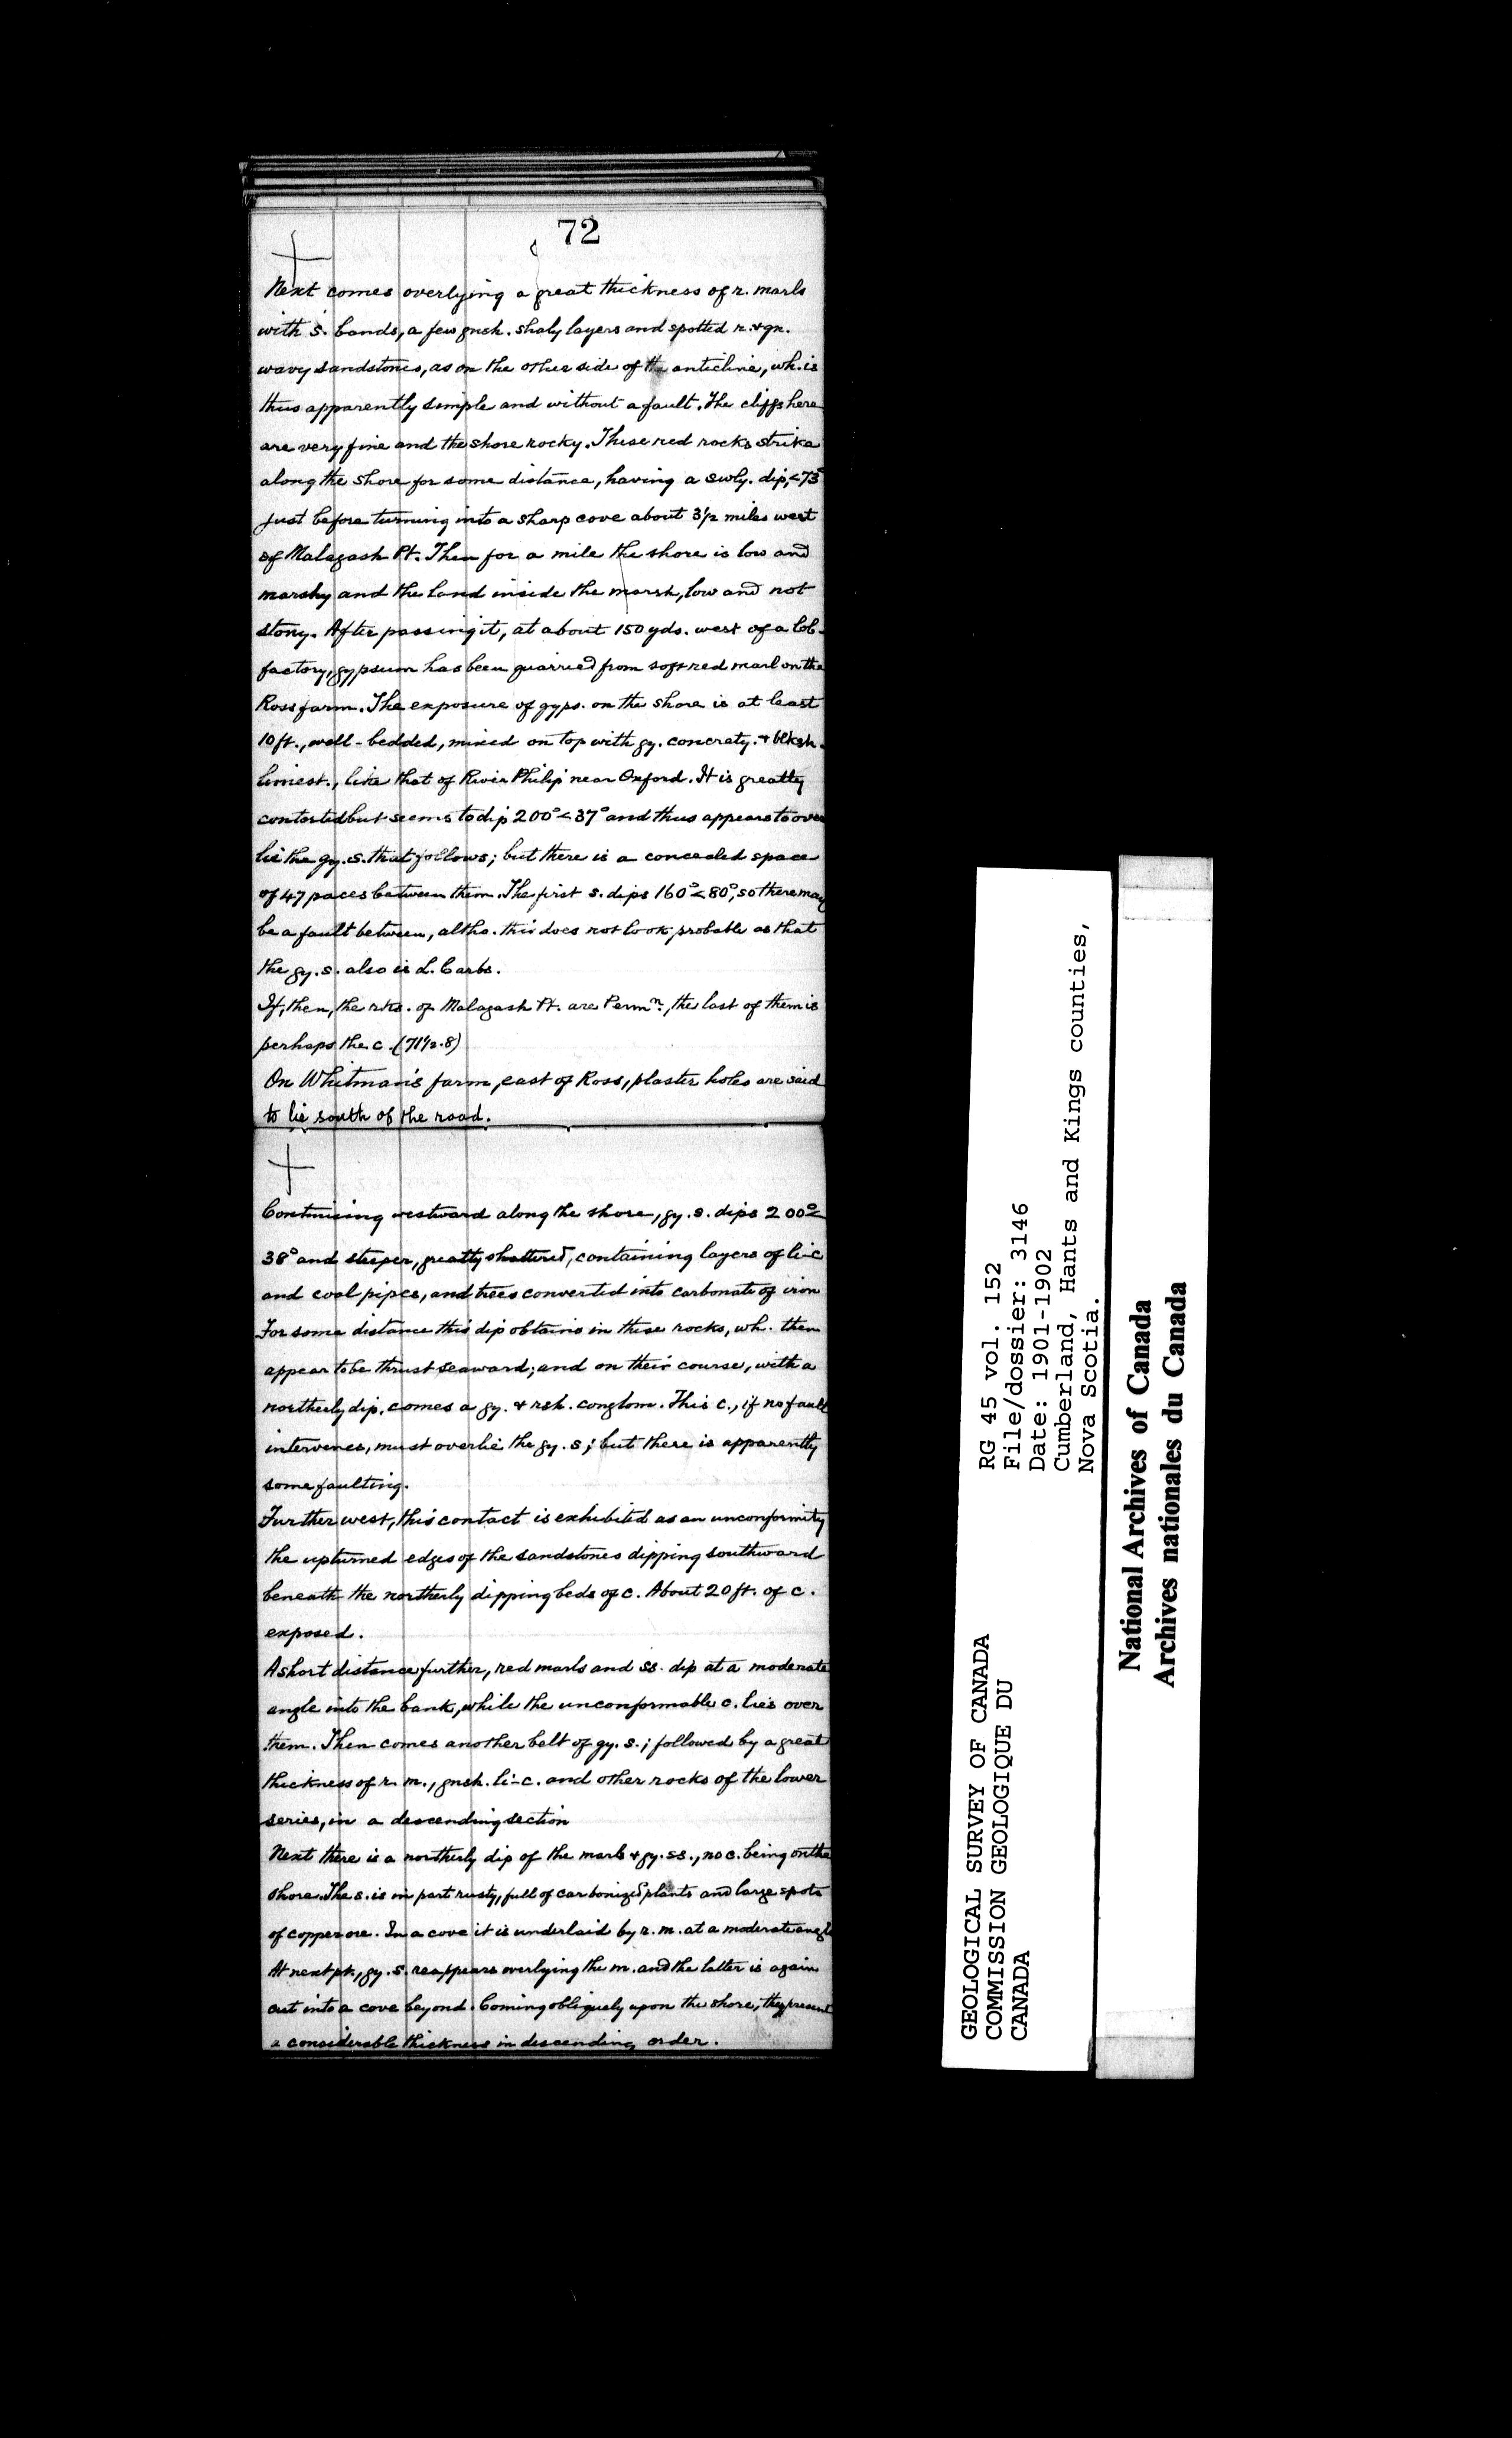 72
Next comes overlying a great thickness of r. marls
with s. bands, a few gnsh. shaly layers and spotted r. & gn.
wavy sandstones, as on the other side of the anticline, wh. is
thus apparently simple and without a fault. The cliffs here
are very fine and the shore rocky. These red rocks strike
along the shore for some distance, having a swly. dip, <73°
just before turning into a sharp cove about 3½ miles west
of Malagash Pt. Then for a mile the shore is low and
marshy and the land inside the marsh, low and not
stony. After passing it, at about 150 yds. west of a lob.
factory, gypsum has been quarried from soft red marl on the
Ross farm. The exposure of gyps. on the shore is at least
10 ft., well-bedded, mixed on top with gy. concrety. & blksh.
limest., like that of River Philip near Oxford. It is greatly
contorted but seems to dip 200° < 37° and thus appears to over
lie the gy. s. that follows; but there is a concealed space
of 47 paces between them. The first s. dips 160° < 80°, so there may
be a fault between, altho. this does not look probable as that
the gy. s. also is L. Carb.
If, then, the rks. of Malagash Pt. are Permn., the last of them is
perhaps the c. (71½.8)
On Whitman's farm, east of Ross, plaster holes are said
to lie south of the road.
Continuing westward along the shore, gy. s. dips 200° <
38° and steeper, greatly shattered, containing layers of li-c
and coal pipes, and trees converted into carbonate of iron
For some distance this dip obtains in these rocks, wh. then
appear to be thrust seaward; and on their course, with a
northerly dip, comes a gy. & rsh. conglom. This c., if no fault
intervenes, must overlie the gy. s; but there is apparently
some faulting.
Further west, this contact is exhibited as an unconformity
the upturned edges of the sandstones dipping southward
beneath the northerly dipping beds of c. About 20 ft. of c.
exposed.
A short distance further, red marls and ss. dip at a moderate
angle into the bank, while the unconformable c. lies over
them. Then comes another belt of gy. s.; followed by a great
thickness of r. m., gnsh. li-c. and other rocks of the lower
series, in a descending section
Next there is a northerly dip of the marls & gy. ss., no c. being on the
shore. The s. is in part rusty, full of carbonized plants and large spots
of copper ore. In a cove it is underlaid by r. m. at a moderate angle
At next pt., gy. s. reappears overlying the m. and the latter is again
cut into a cove beyond. Coming obliquely upon the shore, they present
a considerable thickness in descending order.
GEOLOGICAL SURVEY OF CANADA
COMMISSION GEOLOGIQUE DU
CANADA
RG 45 vol. 152
File/dossier: 3146
Date: 1901-1902
Cumberland, Hants and Kings counties,
Nova Scotia.
National Archives of Canada
Archives nationales du Canada